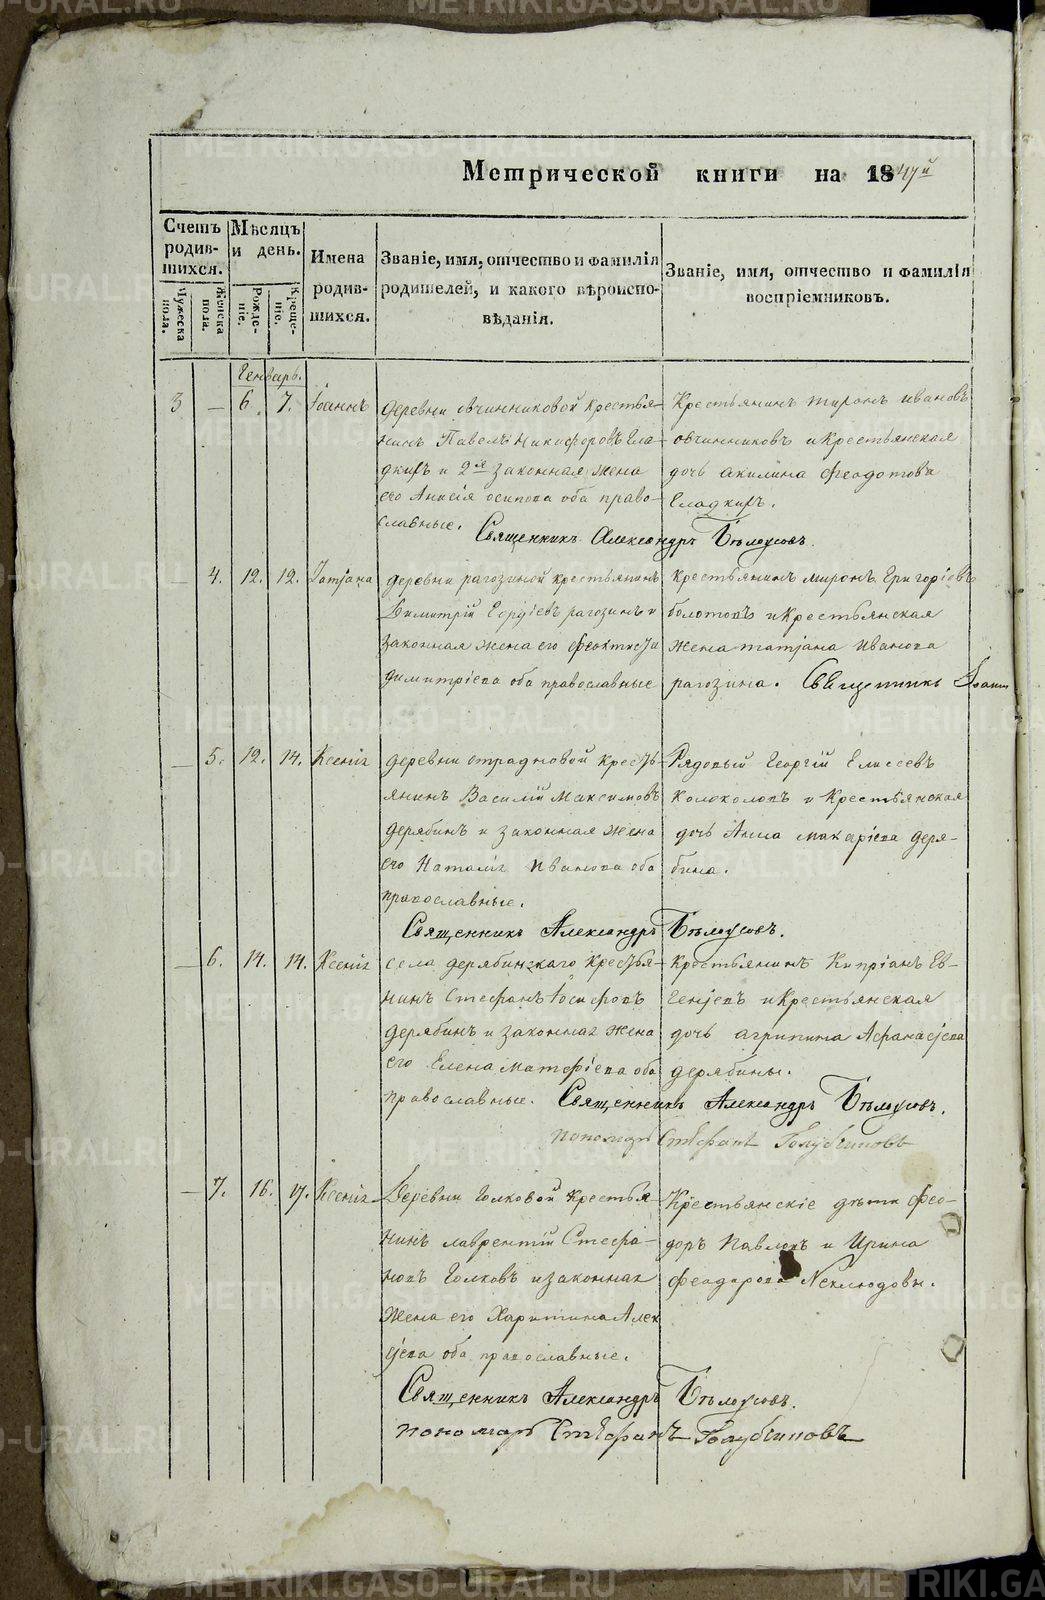 METRIKI.GASO-URAL.RU
Метрической книги на 1847й
Счетъ родив-шихся.
Мѣсяцъ и день.
Имена родив-шихся.
Званіе, имя, отчество и фамилія родителей, и какого вѣроиспо-вѣданія.
Званіе, имя, отчество и фамилія воспріемниковъ.
Мужеска пола.
Женска пола.
Рожде-ніе.
Креще-ніе.
Генварь.
3 — 6. 7. Іоаннъ
деревни овчинниковой крестья-
нинъ Павелъ Никифоровъ Гла-
дкихъ и 2я законная жена
его Анисія осипова оба право-
славные.
Крестьянинъ миронъ ивановъ
овчинниковъ и крестьянская
дочь акилина феодотова
Гладкихъ.
Священникъ Александръ Бѣлоусовъ.
— 4. 12. 12. Татіана
деревни рагозиной крестьянинъ
Димитрій Егоріевъ рагозинъ и
законная жена его феоктиста
димитріева оба православные
крестьянинъ миронъ Григоріевъ
болотовъ и крестьянская
жена татіана Иванова
рагозина. Священникъ Іоаннъ
— 5. 12. 14. Ксенія
деревни отрадновой кресть-
янинъ Василій Максимовъ
дерябинъ и законная жена
его Наталія Иванова оба
православные.
Рядовый Георгій Елисеевъ
Колоколовъ и Крестьянская
дочь Анна макаріева деря-
бина.
Священникъ Александръ Бѣлоусовъ.
— 6. 14. 14. Ксенія
села дерябинскаго крестья-
нинъ Стефанъ Іосифовъ
дерябинъ и законная жена
его Елена матфіева оба
православные.
Крестьянинъ Кипріанъ Ев-
геніевъ и Крестьянская
дочь агрипина Афанасіева
дерябины.
Священникъ Александръ Бѣлоусовъ.
пономарь Стефанъ Голубчиковъ
— 7. 16. 17. Ксенія
Деревни Голковой крестья-
нинъ лаврентій Стефа-
новъ Голковъ и законная
жена его Харитина Алек
сіева оба православные.
Крестьянскіе дѣти фео-
доръ Павловъ и Ирина
феодорова Неклюдовы.
Священникъ Александръ Бѣлоусовъ.
пономарь Стефанъ Голубчиковъ